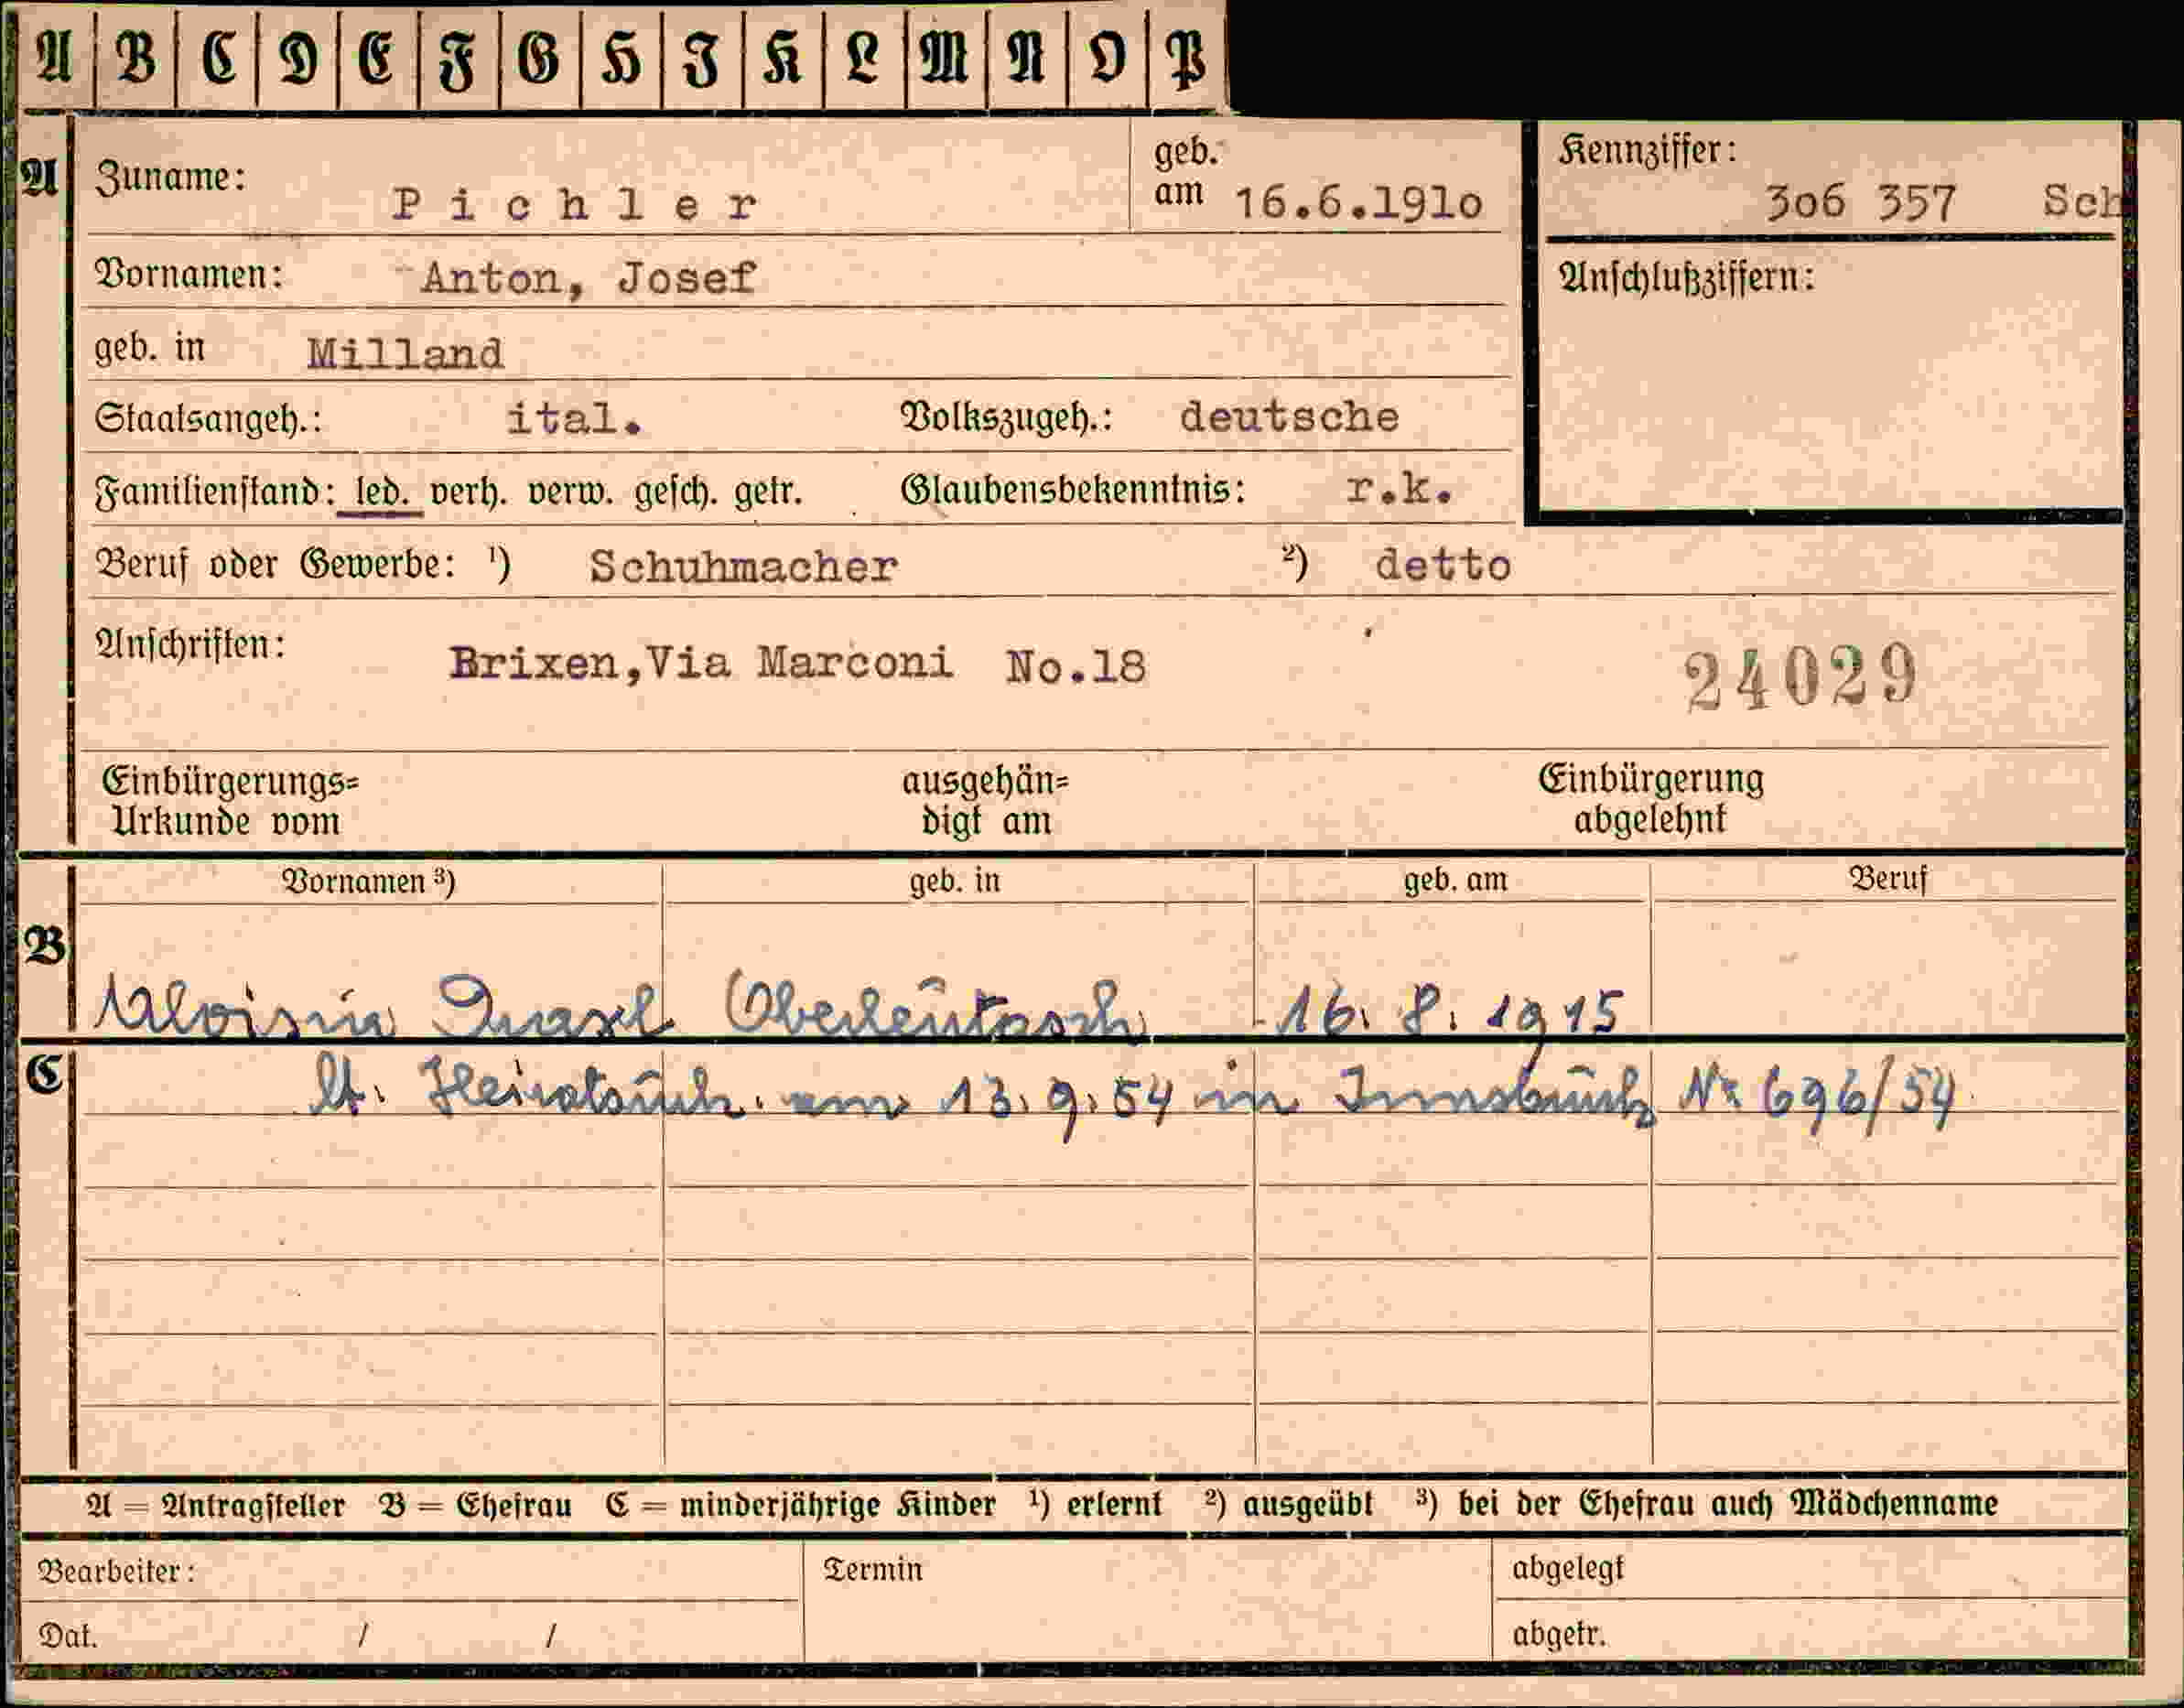 A B C D E F G H I K L M N O P
A Zuname: Pichler geb. am 16.6.191o Kennziffer: 3o6 357 Sch
Vornamen: Anton, Josef Anschlußziffern:
geb. in Milland
Staatsangeh.: ital. Volkszugeh.: deutsche
Familienstand: led. verh. verw. gesch. getr. Glaubensbekenntnis: r.k.
Beruf oder Gewerbe: ¹) Schuhmacher ²) detto
Anschriften: Brixen,Via Marconi No.18 24029
Einbürgerungs= ausgehän= Einbürgerung
Urkunde vom digt am abgelehnt
Vornamen ³) geb. in geb. am Beruf
B Aloisia 16. 8. 1915
C lt. Heiratsurk. am 13.9.54 in Innsbruck Nr 696/54
A = Antragsteller B = Ehefrau C = minderjährige Kinder ¹) erlernt ²) ausgeübt ³) bei der Ehefrau auch Mädchenname
Bearbeiter: Termin abgelegt
Dat. / / abgetr.